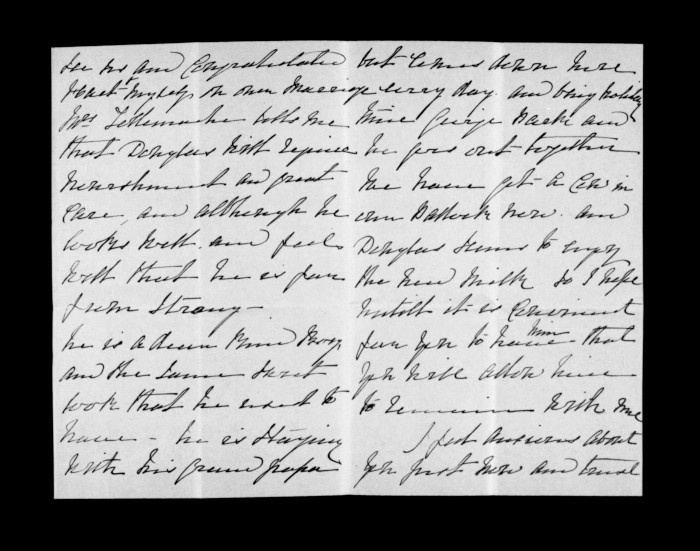 see us and Congratulated
React myself on our Marriage
Mrs Tollemache tells me
that Douglas will require
nourishment and great
Care, and although he
looks well. and feels
well that he is far
from Strong—
he is a dear kind Boy
and the same sweet
look that he used to
have — he is staying
with his grand papa
but Comes down here
every day. and being holiday
time George Back and
he goes out together
We have got a Cow in
our Paddock now. and
Douglas seems to enjoy
the new Milk So I hope
untill it is Convenient
for you to have him that
you will allow him
to remain with me
I feel anxious about
you just now and trust